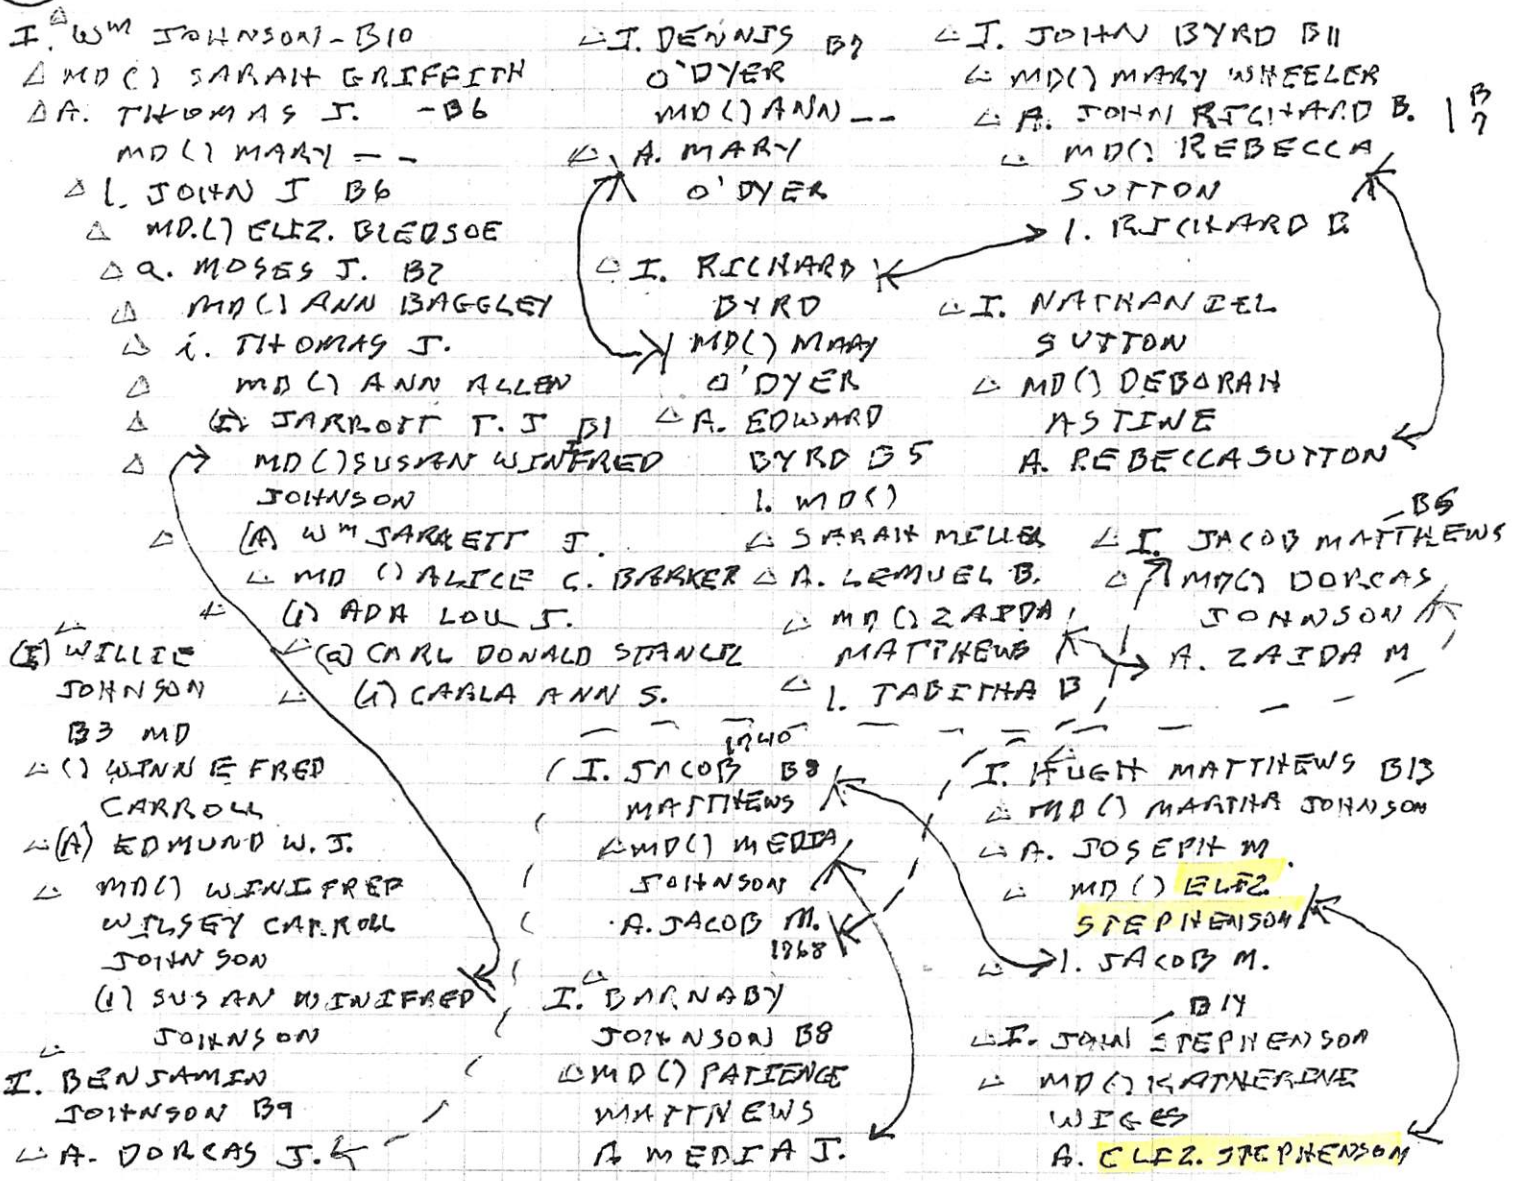 I. Wm JOHNSON-B10
MD() SARAH GRIFFITH
A. THOMAS J. -B6
MD() MARY --
1. JOHN J B6
MD.() ELIZ. BLEDSOE
a. MOSES J. B2
MD() ANN BAGGLEY
i. THOMAS J.
MD() ANN ALLEN
(I) JARROTT T. J B1
MD() SUSAN WINIFRED
JOHNSON
(A) Wm JARRETT J.
MD () ALICE C. BARKER
(1) ADA LOU J.
(a) CARL DONALD STANCIL
(i) CARLA ANN S.
(I) WILLIE
JOHNSON
B3 MD
() WINNEFRED
CARROLL
(A) EDMUND W. J.
MD() WINIFRED
WILSEY CARROLL
JOHNSON
(1) SUSAN WINIFRED
JOHNSON
I. BENJAMIN
JOHNSON B9
A. DORCAS J.
I. DENNIS B7
O'DYER
MD() ANN --
A. MARY
O'DYER
I. RICHARD
BYRD
MD() MARY
O'DYER
A. EDWARD
BYRD B5
1. MD()
SARAH MILLER
A. LEMUEL B.
MD() ZAIDA
MATTHEWS
1. TABITHA B
1740
I. JACOB B8
MATTHEWS
MD() MEDIA
JOHNSON
A. JACOB M.
1768
I. BARNABY
JOHNSON B8
MD() PATIENCE
MATTHEWS
A MEDIA J.
I. JOHN BYRD B11
MD() MARY WHEELER
A. JOHN RICHARD B. B7
MD(). REBECCA
SUTTON
1. RICHARD B
I. NATHANIEL
SUTTON
MD() DEBORAH
ASTINE
A. REBECCA SUTTON
B5
I. JACOB MATTHEWS
MD() DORCAS
JOHNSON
A. ZAIDA M
I. HUGH MATTHEWS B13
MD() MARTHA JOHNSON
A. JOSEPH M.
MD() ELIZ
STEPHENSON
1. JACOB M.
B14
I. JOHN STEPHENSON
MD() KATHERINE
WIGES
A. ELIZ. STEPHENSON